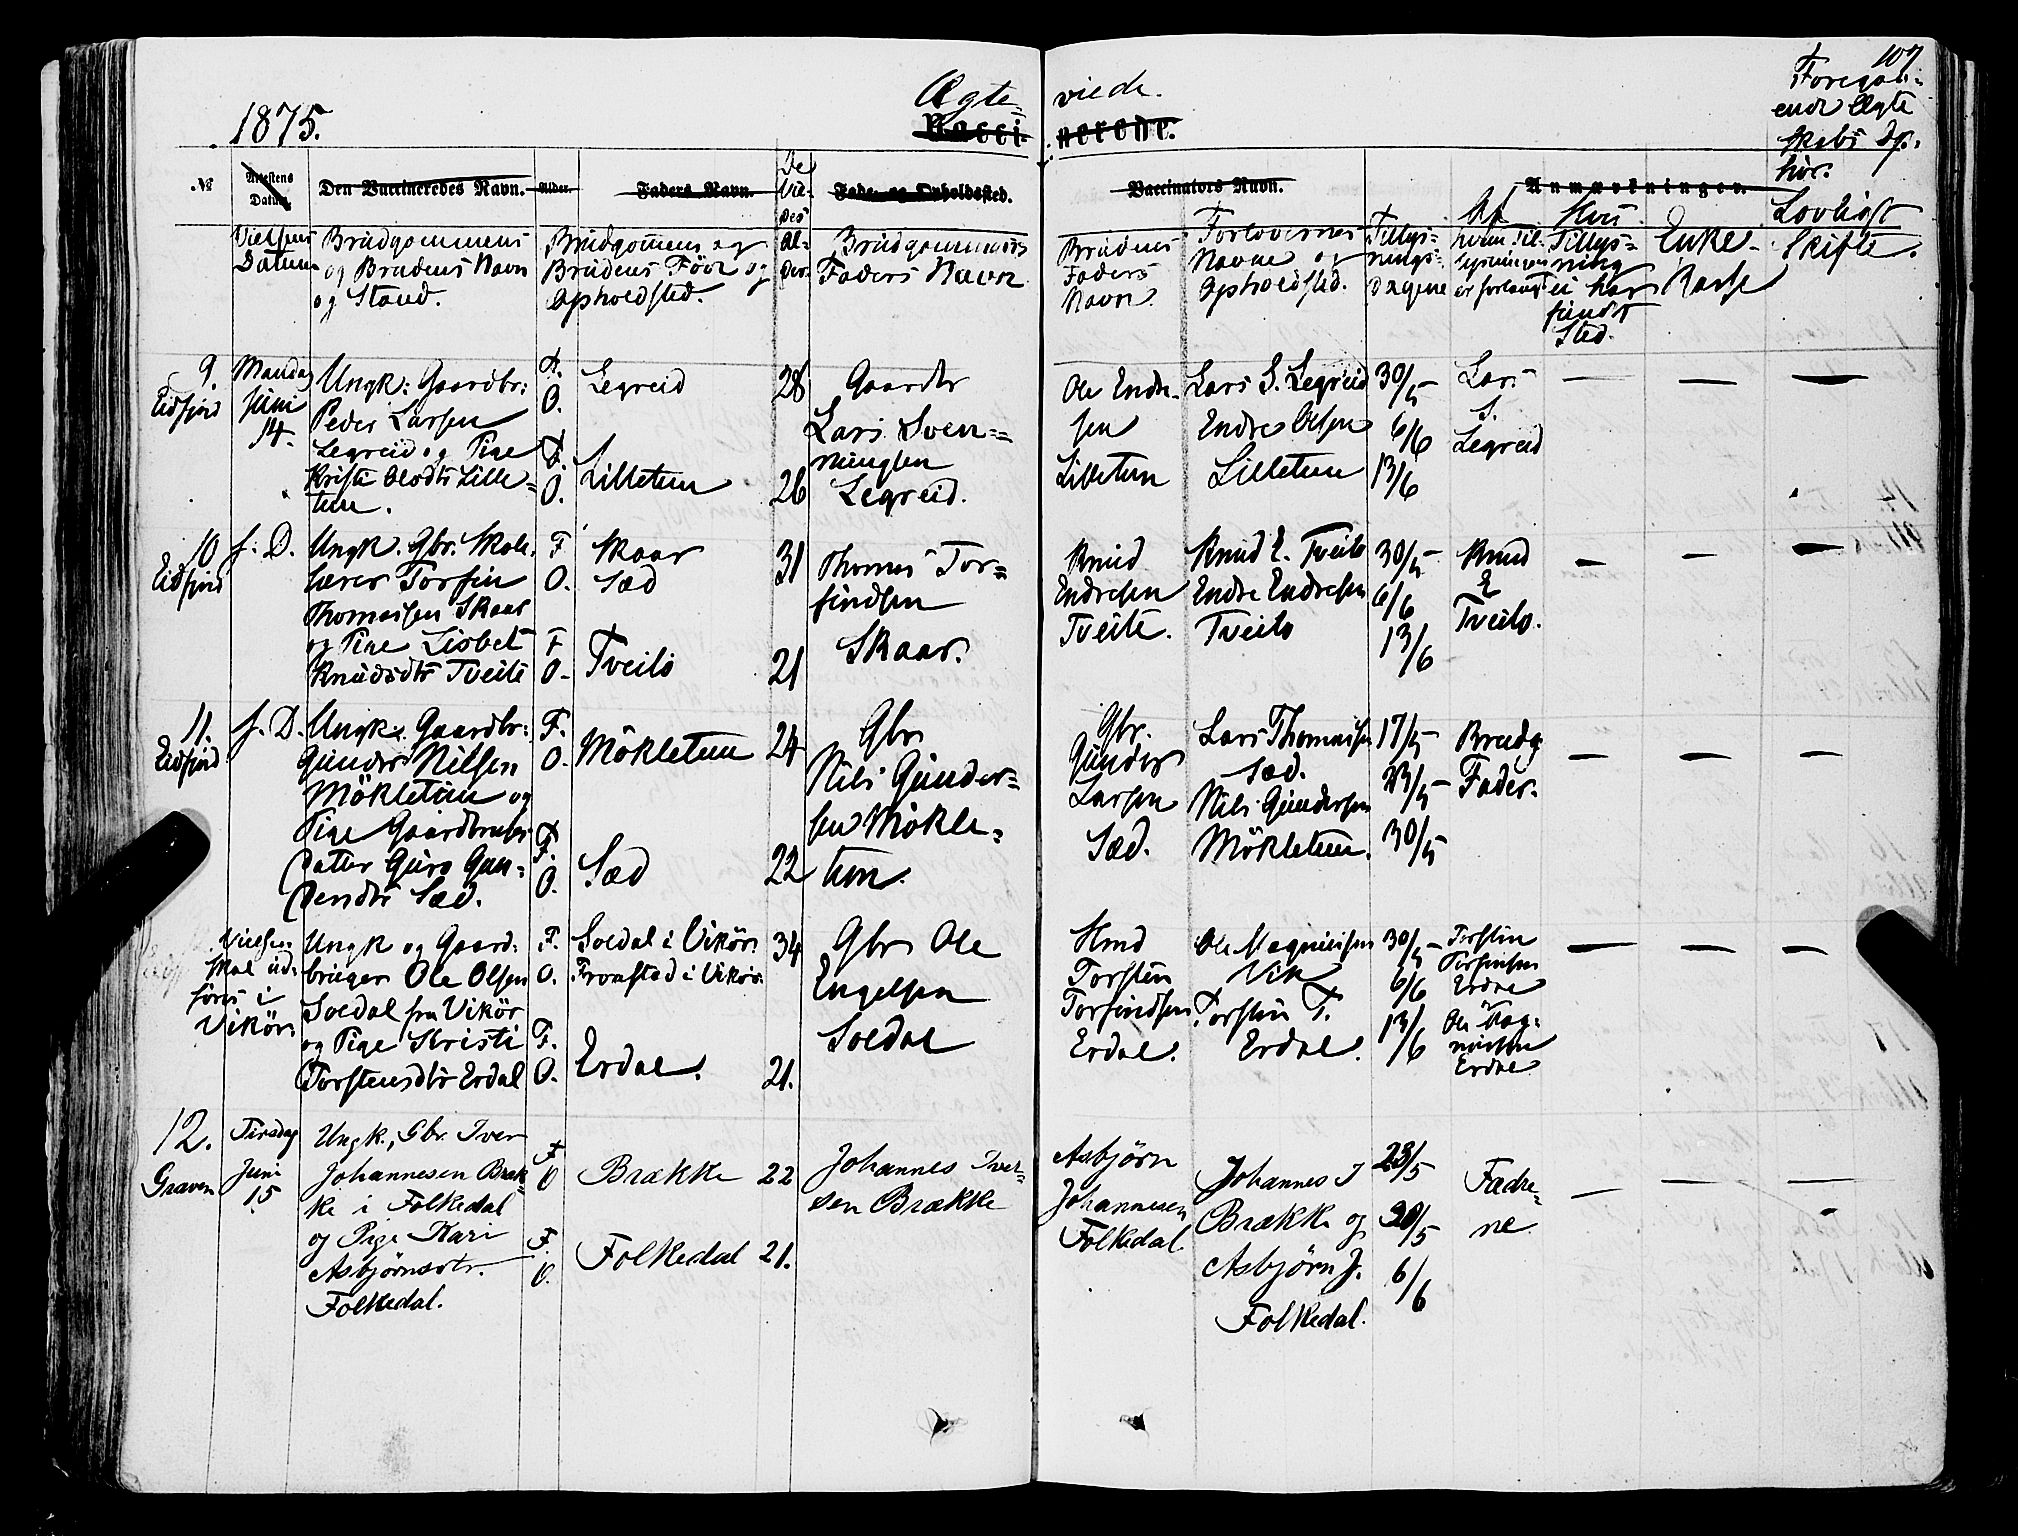 109
1875.
Ægte= viede.
Vacci= nerede.
Foregaa=
ende Ægte
skabs Op=
hør.
№
Attestens Datum.
Den Vaccineredes Navn.
Alder.
Faders Navn.
De Vie= des Al= der.
Føde- og Opholdssted.
Vaccinators Navn.
Anmærkninger.
Vielsens Datum
Brudgommens
og Brudens Navn
og Stand.
Brudgommens og
Brudens Føde og
Opholdsted.
Brudgommens
Faders Navn
Brudens
Faders
Navn.
Forlovernes
Navne og
Opholdsted.
Tillys=
nings=
dagene
Af
hvem Til=
lysningen
er forlangt
Hvis
Tillys=
ning
ei har
fundet
Sted.
Enke=
Kasse
Lovligt
Skifte.
9.
Eidfjord
Mandag
Juni
14.
Ungk: Gaardbr:
Peder Larsen
Legreid og Pige
Kristi Olsdtr Lille=
tun.
F.
O.
F.
O.
Legreid
Lilletun
28
26
Gaardbr
Lars Sven=
ningsen
Legreid.
Ole Endre=
sen
Lilletun
Lars S. Legreid
Endre Olsen
Lilletun
30/5
6/6
13/6
Lars
S.
Legreid
10
Eidfjord
s. D.
Ungk. Gbr. Skole=
lærer Torfin
Thomassen Skaar
og Pige Lisbet
Knudsdtr Tveite
F
O.
F
O.
Skaar
Sæd
Tveito
31
21
Thomas Tor=
findsen
Skaar.
Knud
Endresen
Tveite.
Knud E. Tveito
Endre Endresen
Tveito
30/5
6/6
13/6
Knud
E
Tveito.
11.
Eidfjord
s. D.
Ungk. Gaardbr:
Gunder Nilsen
Mökletun og
Pige Gaardbruger
datter Guro Gun=
dersdtr Sæd.
F.
O.
F.
O.
Mökletun
Sæd
24
22
Gbr
Nils Gunder=
sen Mökle=
tun.
Gbr.
Gunder
Larsen
Sæd.
Lars Thomassen
Sæd.
Nils Gundersen
Mökletun.
17/5
23/5
30/5
Brudg
Fader.
Vielsen
skal ud=
föres i
Vikör.
Ungk og Gaard=
bruger Ole Olsen
Soldal fra Vikör
og Pige Kristi
Torstensdtr Erdal
F.
O.
F.
O.
Soldal i Vikör.
Tronstad i Vikör.
Erdal.
34
21.
Gbr Ole
Engelsen
Soldal
Torsten
Torfindsen
Erdal.
Ole Magnusen
Vik
Torstin T.
Erdal.
30/5
6/6
13/6
Torstin
Torfinsen
Erdal
Ole Mag=
nusen
Erdal
12.
Graven
Tirsdag
Juni
15.
Ungk., Gbr. Iver
Johannesen Bræk=
ke i Folkedal
og Pige Kari
Asbjørnsdtr.
Folkedal.
F
O
F.
O.
Brække
Folkedal
22
21.
Johannes Iver=
sen Brække
Asbjörn
Johannesen
Folkedal.
Johannes I
Brække og
Asbjörn J.
Folkedal.
23/5
30/5
6/6
Fædre=
ne